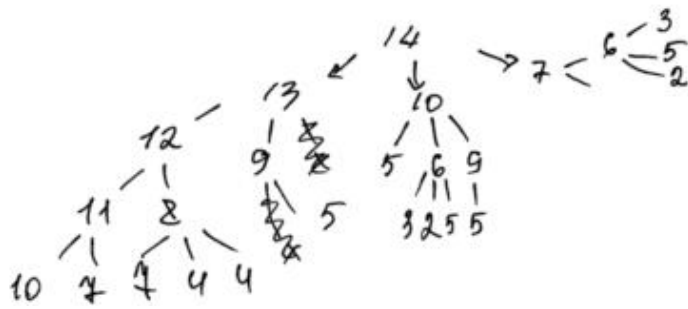 14 3
6 5
7 2
13 10
12 9 5 6 9
11 8 5 3 2 5 5
10 7 7 4 4